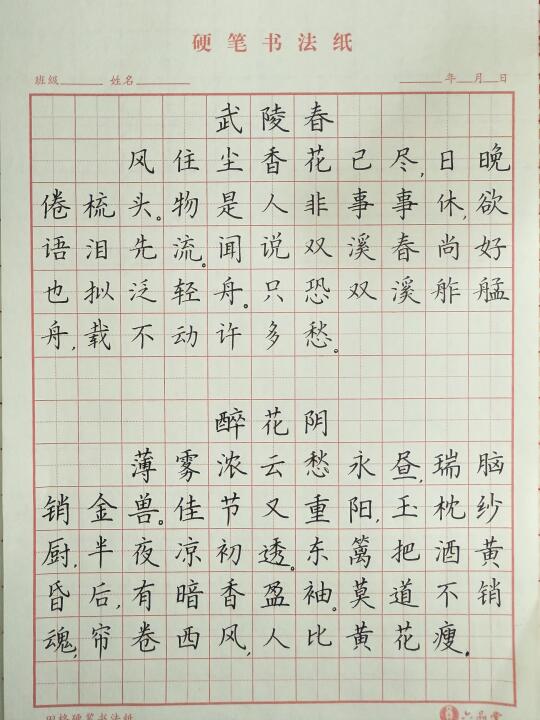 硬笔书法纸
班级 姓名 年 月 日
武陵春
风住尘香花已尽,日晚
倦梳头。物是人非事事休,欲
语泪先流。闻说双溪春尚好
也拟泛轻舟。只恐双溪舴艋
舟,载不动许多愁。
醉花阴
薄雾浓云愁永昼,瑞脑
销金兽。佳节又重阳,玉枕纱
厨,半夜凉初透。东篱把酒黄
昏后,有暗香盈袖。莫道不销
魂,帘卷西风,人比黄花瘦。
田格硬笔书法纸
六品堂